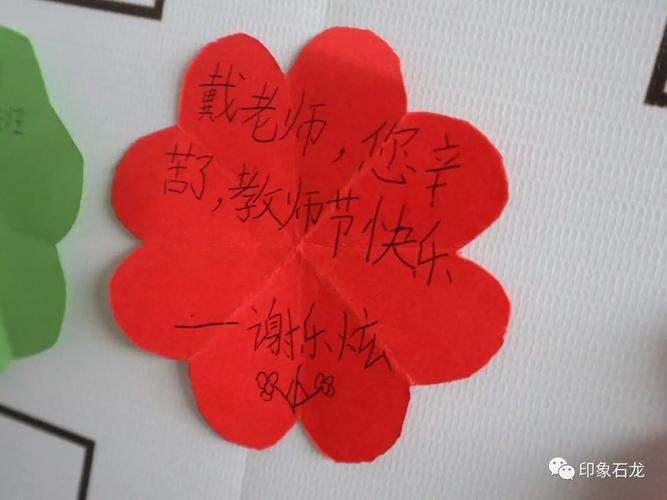 戴老师，您辛
苦了，教师节快乐
—谢乐炫
班
印象石龙